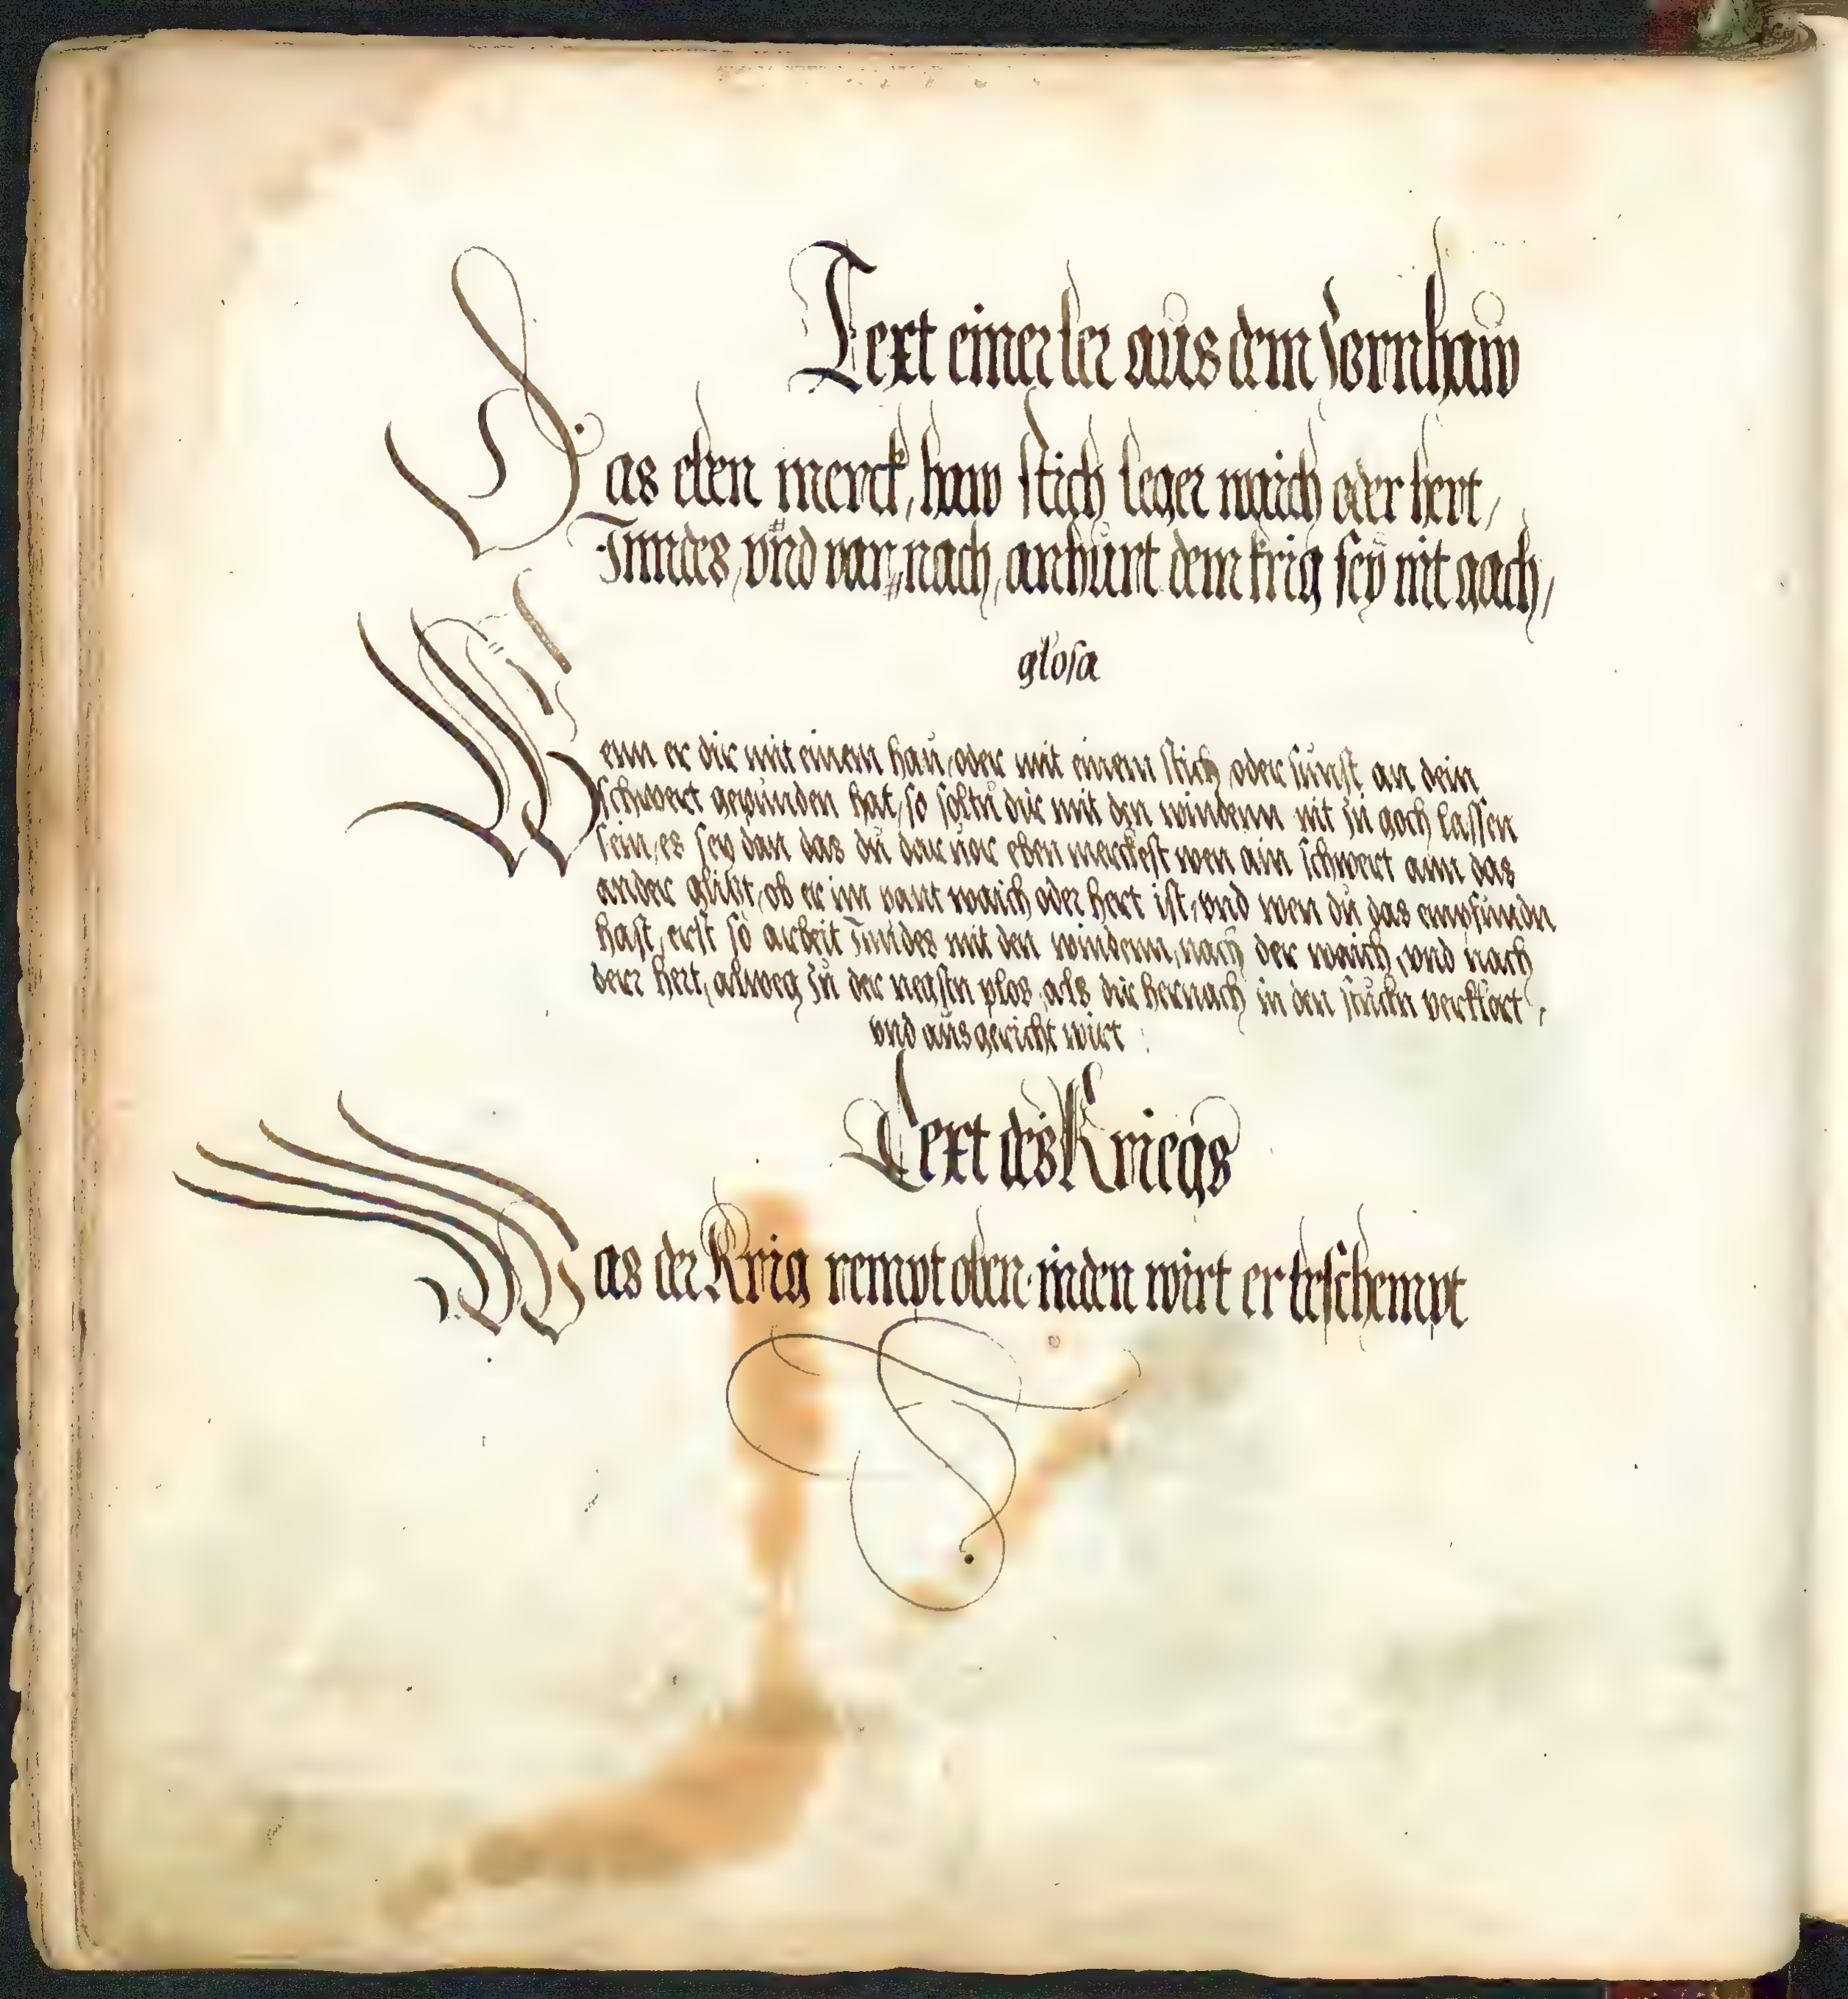 Text einer ler aus dem Zornhaw
Das eben merck, haw stich leger waich oder hert,
Inndes, vnd var, nach, anhurt dem krig sey nit gach,
glosa
Wenn er dir mit einem hau, oder mit einem stich oder sunst an dein
schwert gepunden hat, so soltu dir mit den windenn nit zu goch lassen
sein, es sey dan das du dar uor eben merckest wen ain schwert ann das
ander glitzt, ob er im pant waich oder hert ist, vnd wen du das empfundn
hast, erst so arbeit Inndes mit den windenn, nach der waich, vnd nach
derr hert, alweg zu der negstn plos, als dir hernach in den stuckn verklort,
vnd ausgericht wirt :
Text des Kriegs
Was der Krig rempt oben niden wirt er beschempt